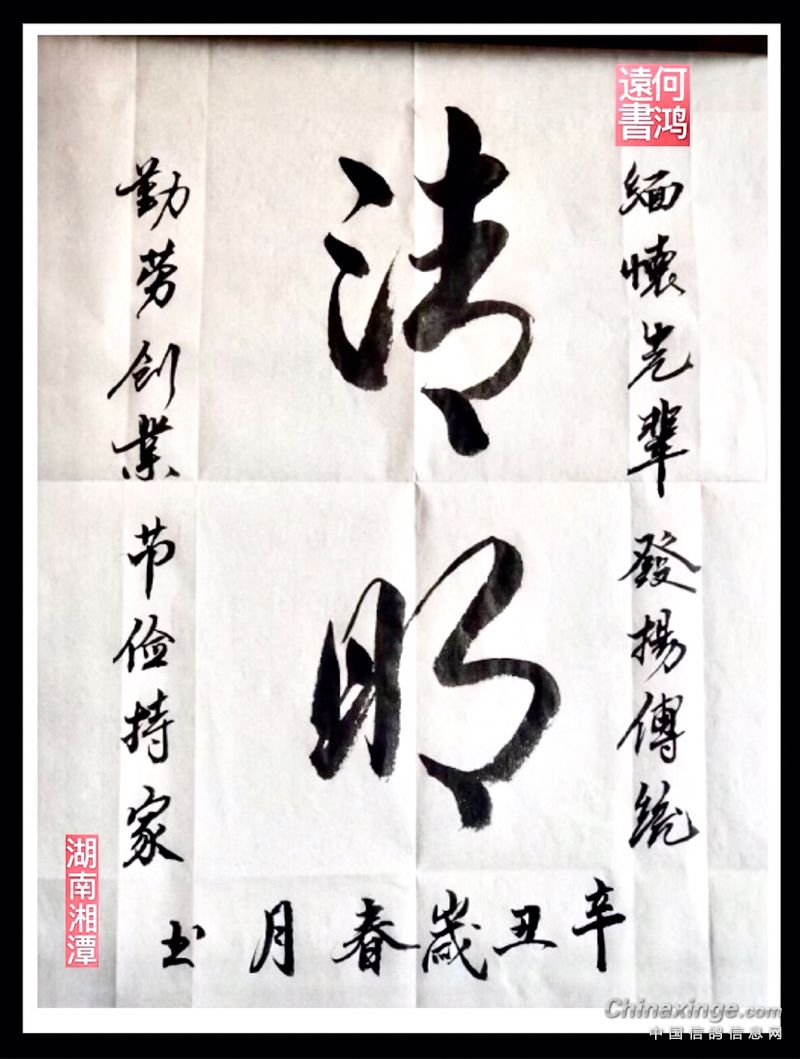 何鸿
遠書
緬懷先輩發揚傳統
清明
勤劳创業节俭持家
辛丑歲春月书
湖南湘潭
Chinaxinge.com
中国信鸽信息网